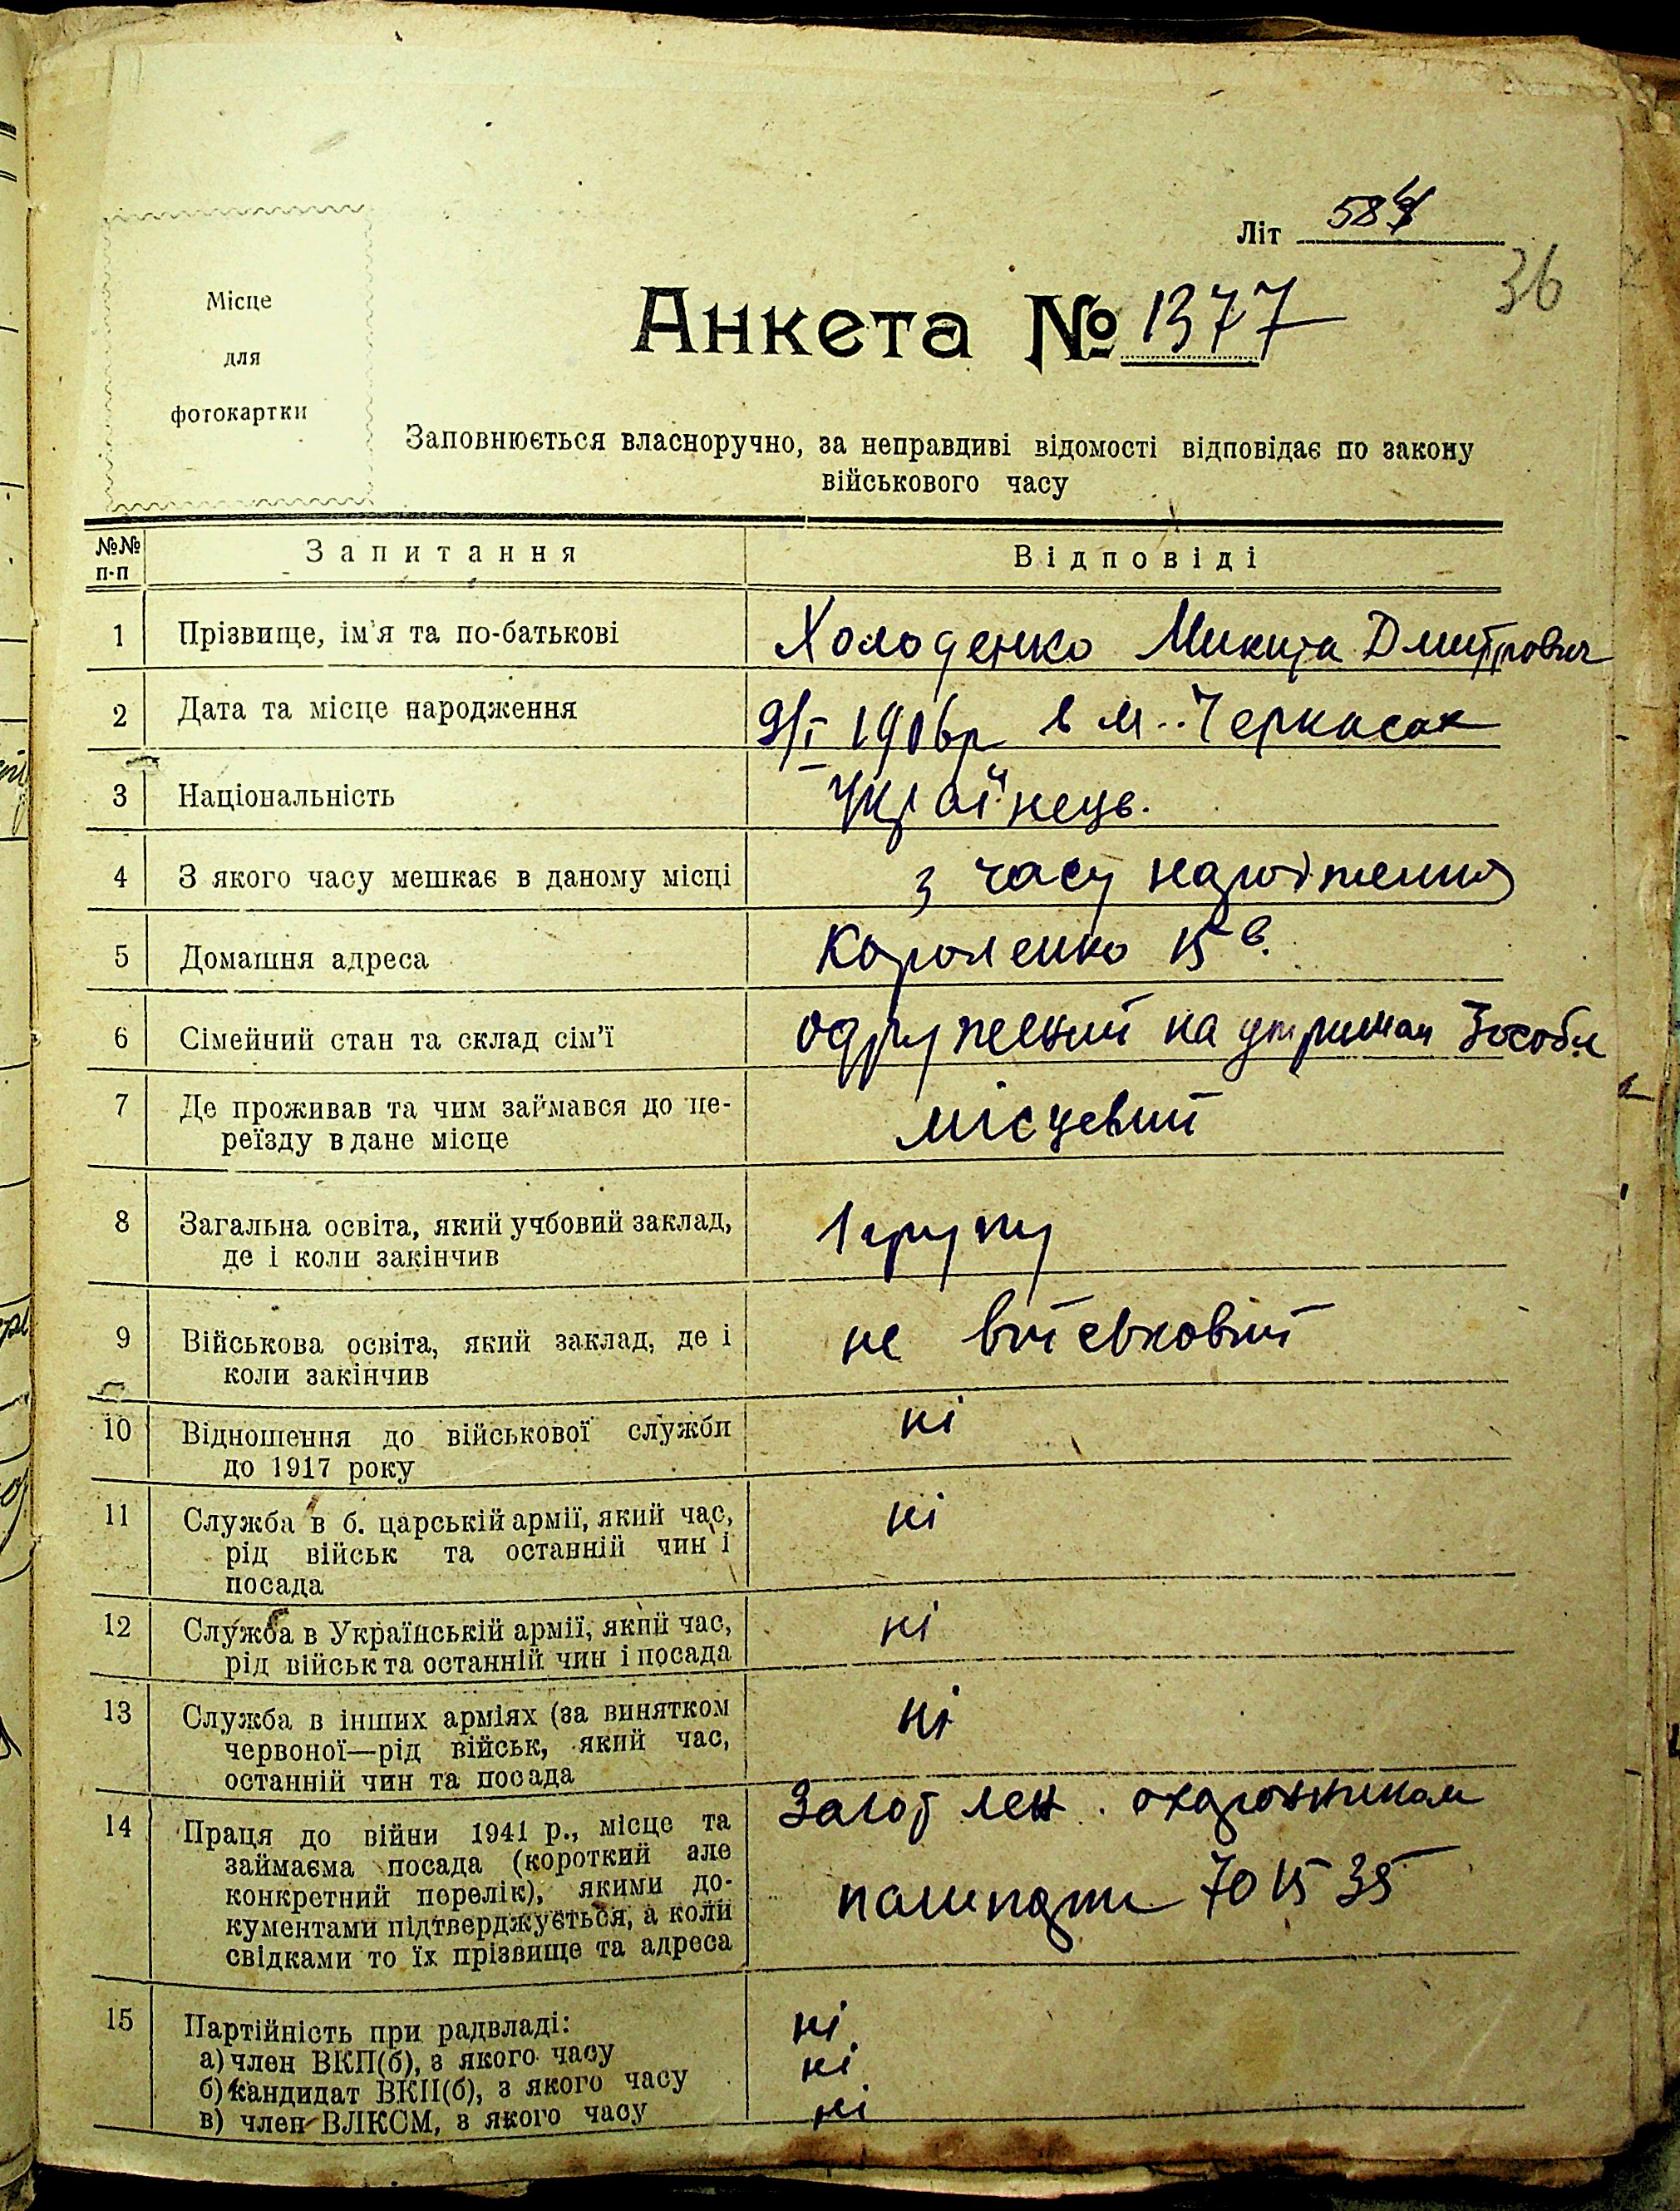 Літ 584
36
Місце
для
фотокартки
Анкета № 1377
Заповнюється власноручно, за неправдиві відомості відповідає по закону
військового часу
№№ п-п Запитання Відповіді
1 Прізвище, ім'я та по-батькові Холоденко Микита Дмитрович
2 Дата та місце народження 9/I 1906р в м. Черкасах
3 Національність Українець.
4 З якого часу мешкає в даному місці з часу народження
5 Домашня адреса Короленко 15 в.
6 Сімейний стан та склад сім'ї одружений на утриман 3 особи
7 Де проживав та чим займався до пе- місцевий
реїзду в дане місце
8 Загальна освіта, який учбовий заклад, 1 групу
де і коли закінчив
9 Військова освіта, який заклад, де і не військовий
коли закінчив
10 Відношення до військової служби ні
до 1917 року
11 Служба в б. царській армії, який час, ні
рід військ та останній чин і
посада
12 Служба в Українській армії, який час, ні
рід військ та останній чин і посада
13 Служба в інших арміях (за винятком ні
червоної—рід військ, який час,
останній чин та посада
14 Праця до війни 1941 р., місце та Загот лен. охаронником
займаєма посада (короткий але
конкретний перелік), якими до- пашпорт 701535
кументами підтверджується, а коли
свідками то їх прізвище та адреса
15 Партійність при радвладі: ні
а) член ВКП(б), з якого часу ні
б) кандидат ВКП(б), з якого часу ні
в) член ВЛКСМ, з якого часу